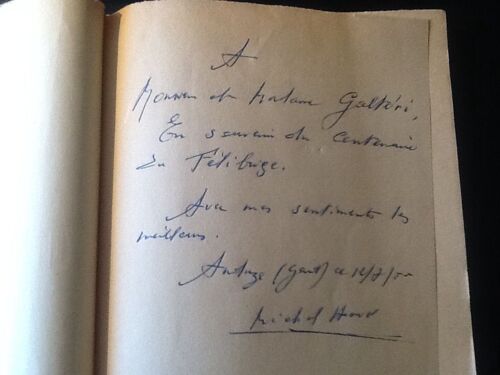 A
Monsieur et Madame Galtéri,
En souvenir du Centenaire
du Félibrige.
Avec mes sentiments les
meilleurs.
Anduze (Gard) ce
Michel